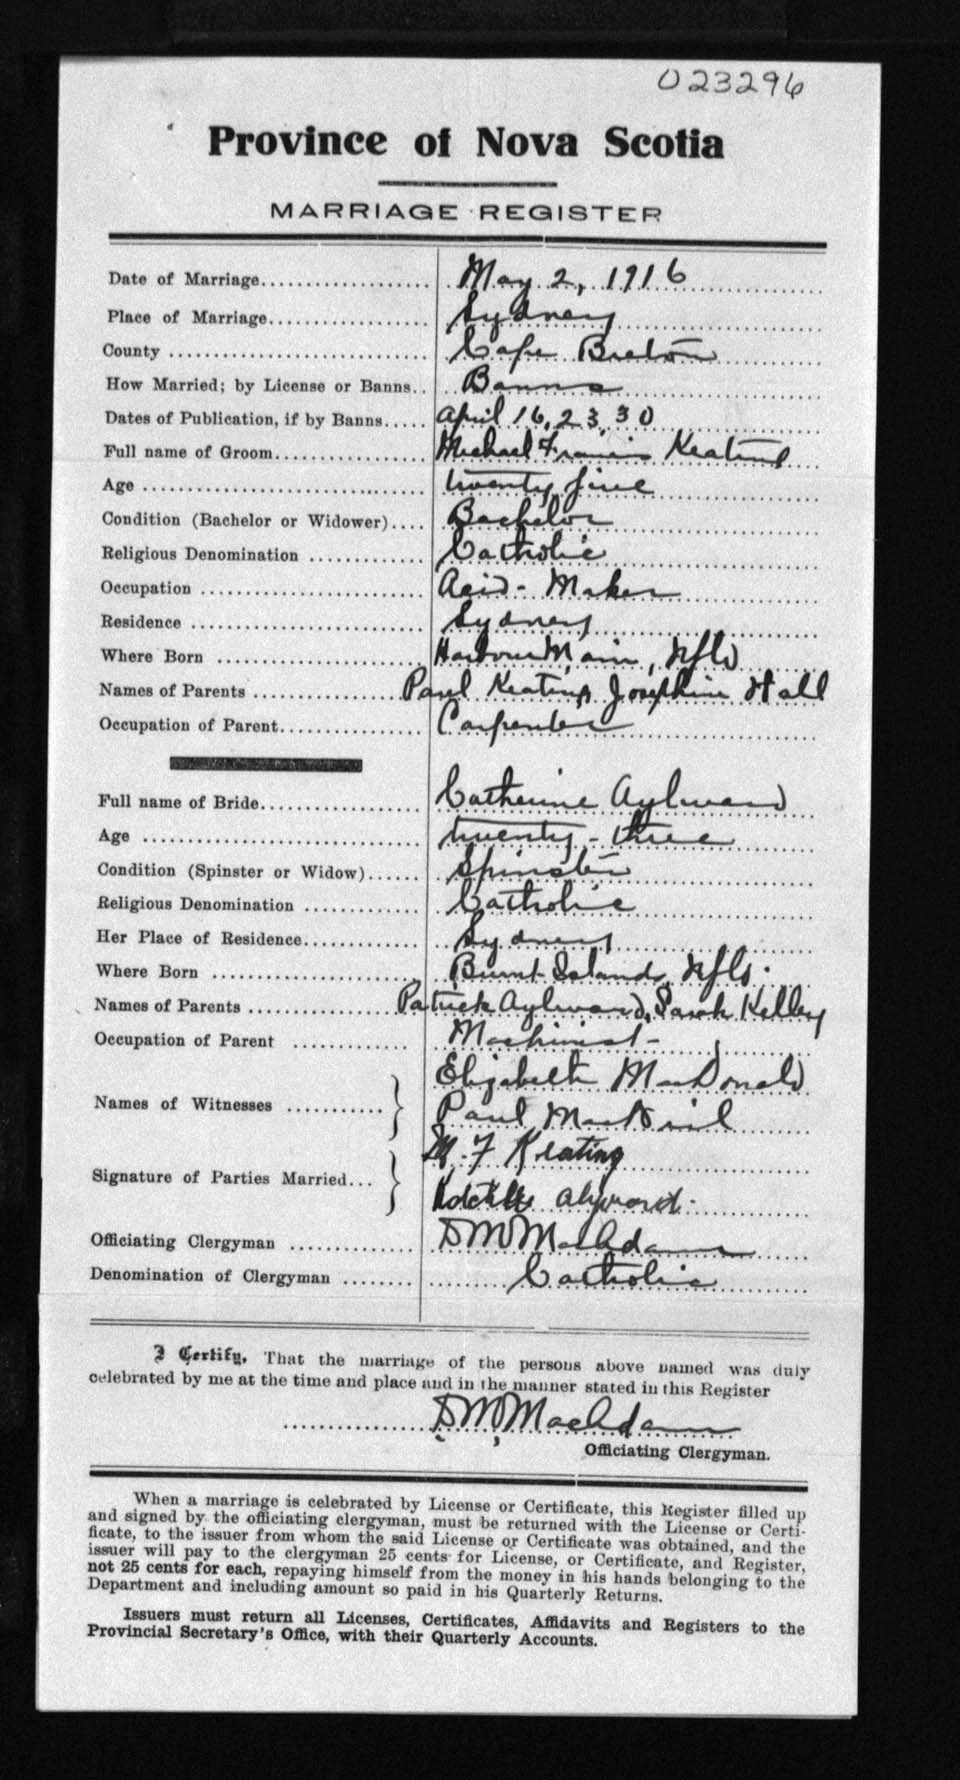 023296
Province of Nova Scotia
MARRIAGE REGISTER
Date of Marriage.................... May 2, 1916
Place of Marriage.................. Sydney
County ............................. Cape Breton
How Married; by License or Banns.. Banns
Dates of Publication, if by Banns..... April 16, 23, 30
Full name of Groom................. Michael Francis Keating
Age ................................ twenty five
Condition (Bachelor or Widower).... Bachelor
Religious Denomination ............. Catholic
Occupation ......................... Acid-Maker
Residence .......................... Sydney
Where Born ....................... Harbour Main, Nfld
Names of Parents ................. Paul Keating, Josephine Hall
Occupation of Parent................ Carpenter
Full name of Bride.................. Catherine Aylward
Age ................................ twenty-three
Condition (Spinster or Widow)...... Spinster
Religious Denomination ............. Catholic
Her Place of Residence............. Sydney
Where Born ........................ Burnt Islands, Nfld.
Names of Parents .................. Patrick Aylward, Sarah Kelley
Occupation of Parent ............. Machinist
Names of Witnesses ........... } Elizabeth MacDonald
Paul
Signature of Parties Married... } M. F Keating
Aylward.
Officiating Clergyman .............. D M MacAdam
Denomination of Clergyman ........ Catholic
I Certify, That the marriage of the persons above named was duly
celebrated by me at the time and place and in the manner stated in this Register
D M MacAdam
Officiating Clergyman.
When a marriage is celebrated by License or Certificate, this Register filled up
and signed by the officiating clergyman, must be returned with the License or Certi-
ficate, to the issuer from whom the said License or Certificate was obtained, and the
issuer will pay to the clergyman 25 cents for License, or Certificate, and Register,
not 25 cents for each, repaying himself from the money in his hands belonging to the
Department and including amount so paid in his Quarterly Returns.
Issuers must return all Licenses, Certificates, Affidavits and Registers to the
Provincial Secretary's Office, with their Quarterly Accounts.